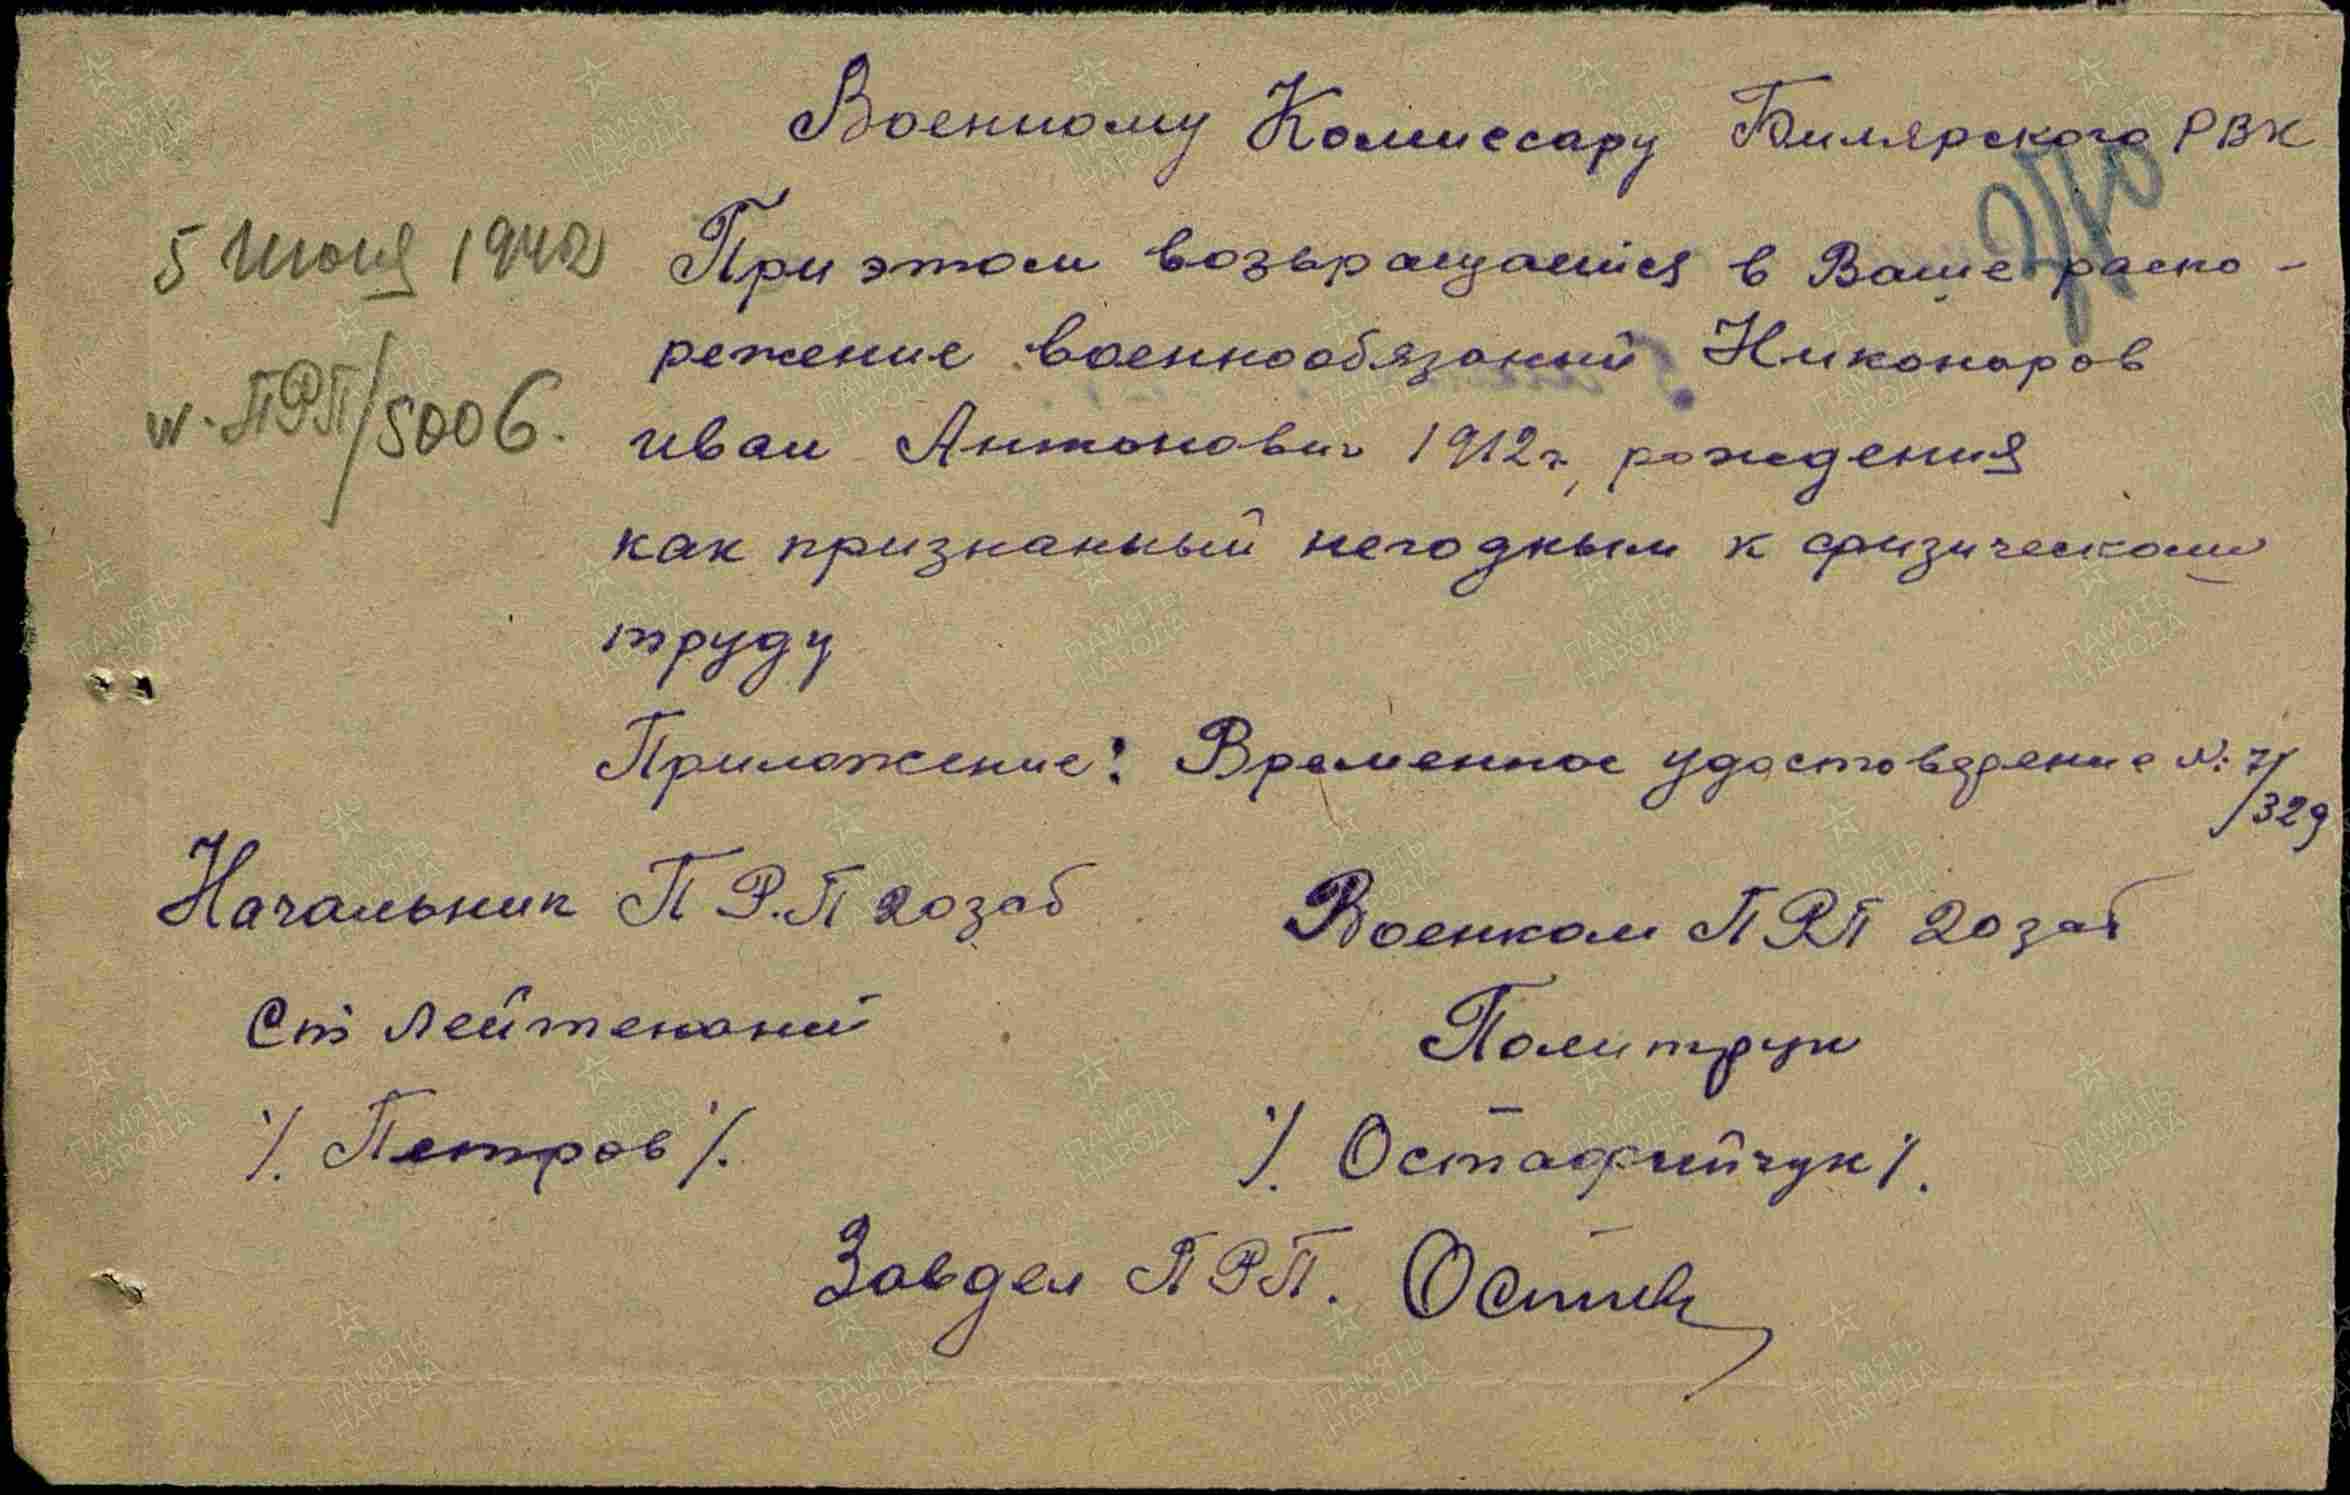 Военному Комиссару Билярского РВК
270
5 Июня 1942
N. ПРП/5006.
При этом возвращается в Ваше распо-
режение военнообязаный Никоноров
Иван Антонович 1912г, рождения
как признанный негодным к физическому
труду
Приложение: Временное удостоверение N: 7/329
Начальник П Р.П 20 заб
Ст Лейтенант
/. Петров /.
Военком ПРП 20 заб
Политрук
/. Остафийчук /.
Завдел ПРП.